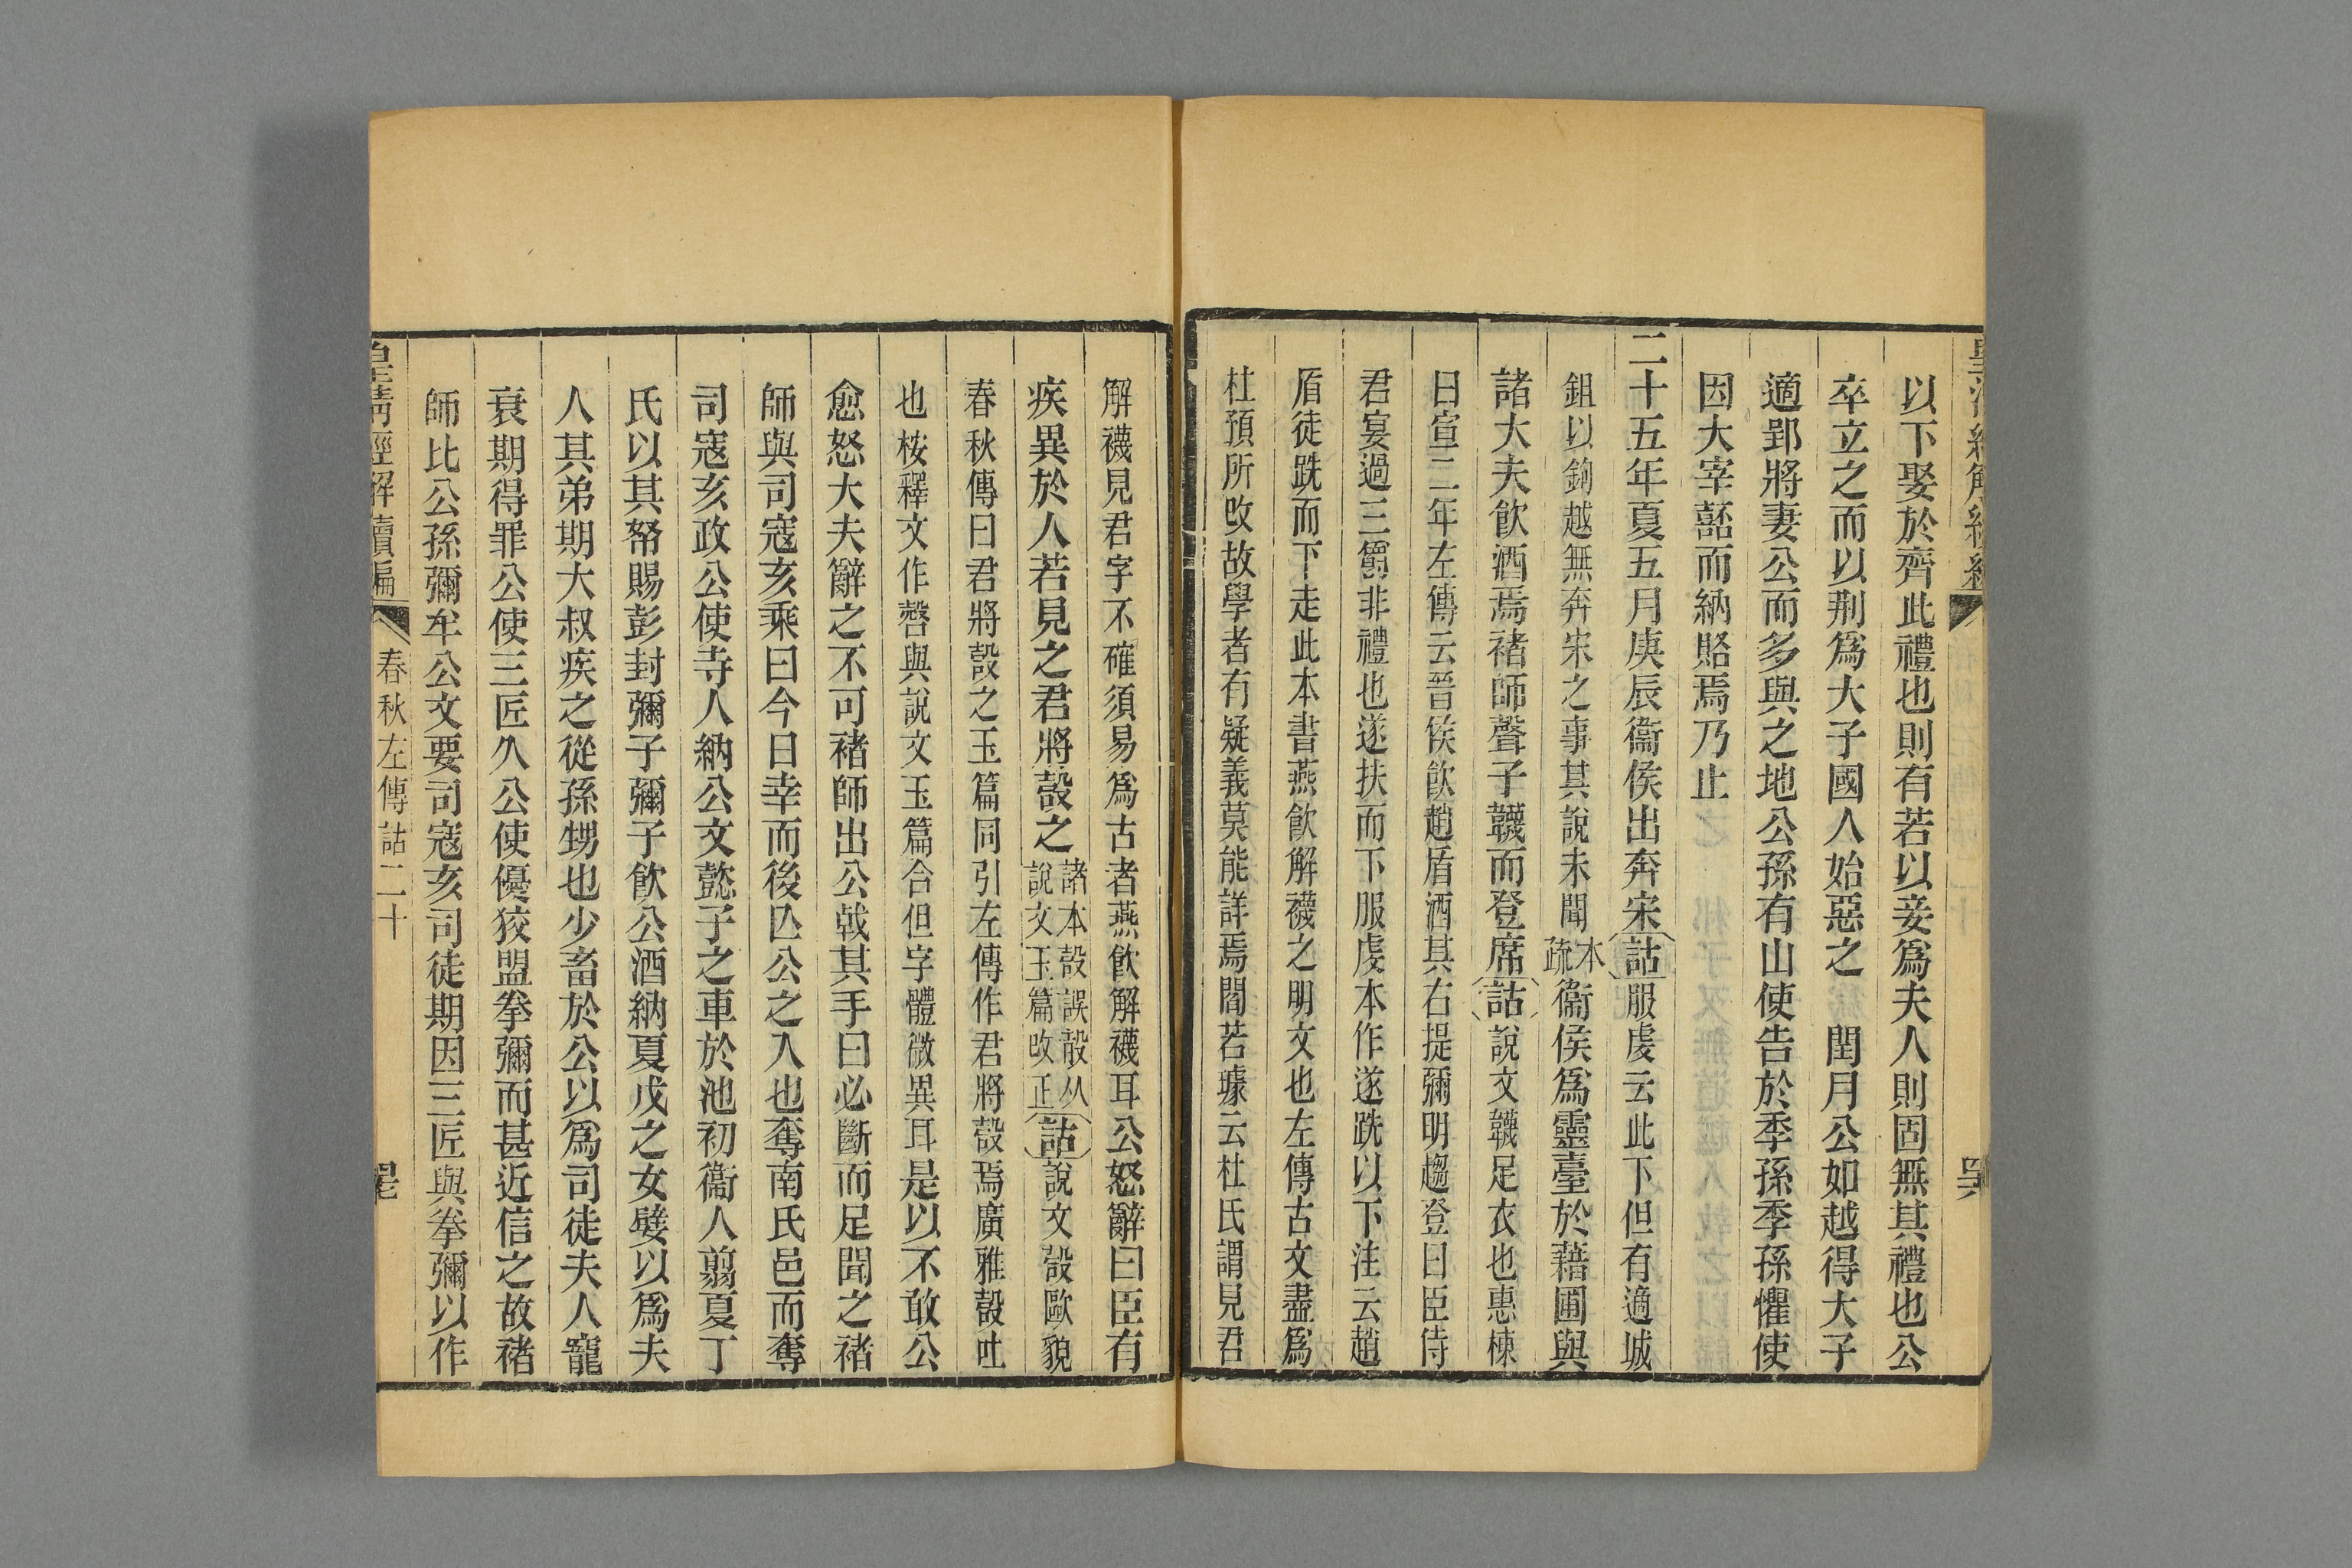 以下娶於齊此禮也則有若以妾爲夫人則固無其禮也公
卒立之而以荆爲大子國人始惡之 閏月公如越得大子
適郢將妻公而多與之地公孫有山使告於季孫季孫懼使
因大宰嚭而納賂焉乃止
二十五年夏五月庚辰衞侯出奔宋詁服虔云此下但有適城
鉏以鉤越無奔宋之事其說未聞本疏衞侯爲靈臺於藉圃與
諸大夫飮酒焉褚師聲子韤而登席詁說文韤足衣也惠棟
曰宣二年左傳云晉侯飮趙盾酒其右提彌明趨登曰臣侍
君宴過三爵非禮也遂扶而下服虔本作遂跣以下注云趙
盾徒跣而下走此本書燕飮解襪之明文也左傳古文盡爲
杜預所改故學者有疑義莫能詳焉閻若璩云杜氏謂見君
解襪見君字不確須易爲古者燕飮解襪耳公怒辭曰臣有
疾異於人若見之君將㱿之諸本㱿誤殻从說文玉篇改正詁說文㱿歐貌
春秋傳曰君將㱿之玉篇同引左傳作君將㱿焉廣雅㱿吐
也桉釋文作㗉與說文玉篇合但字體微異耳是以不敢公
愈怒大夫辭之不可褚師出公戟其手曰必斷而足聞之褚
師與司寇亥乘曰今日幸而後亾公之入也奪南氏邑而奪
司寇亥政公使寺人納公文懿子之車於池初衞人翦夏丁
氏以其帑賜彭封彌子彌子飮公酒納夏戊之女嬖以爲夫
人其弟期大叔疾之從孫甥也少畜於公以爲司徒夫人寵
衰期得罪公使三匠久公使優狡盟拳彌而甚近信之故褚
師比公孫彌牟公文要司寇亥司徒期因三匠與拳彌以作
皇淸經解續編
春秋左傳詁二十